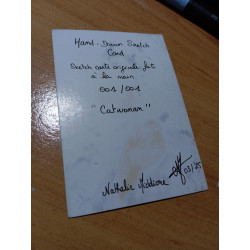 Hand-Drawn Sketch
Card
Sketch carte originale fait
à la main
001/001
"Catwoman"
Nathalie
03/25